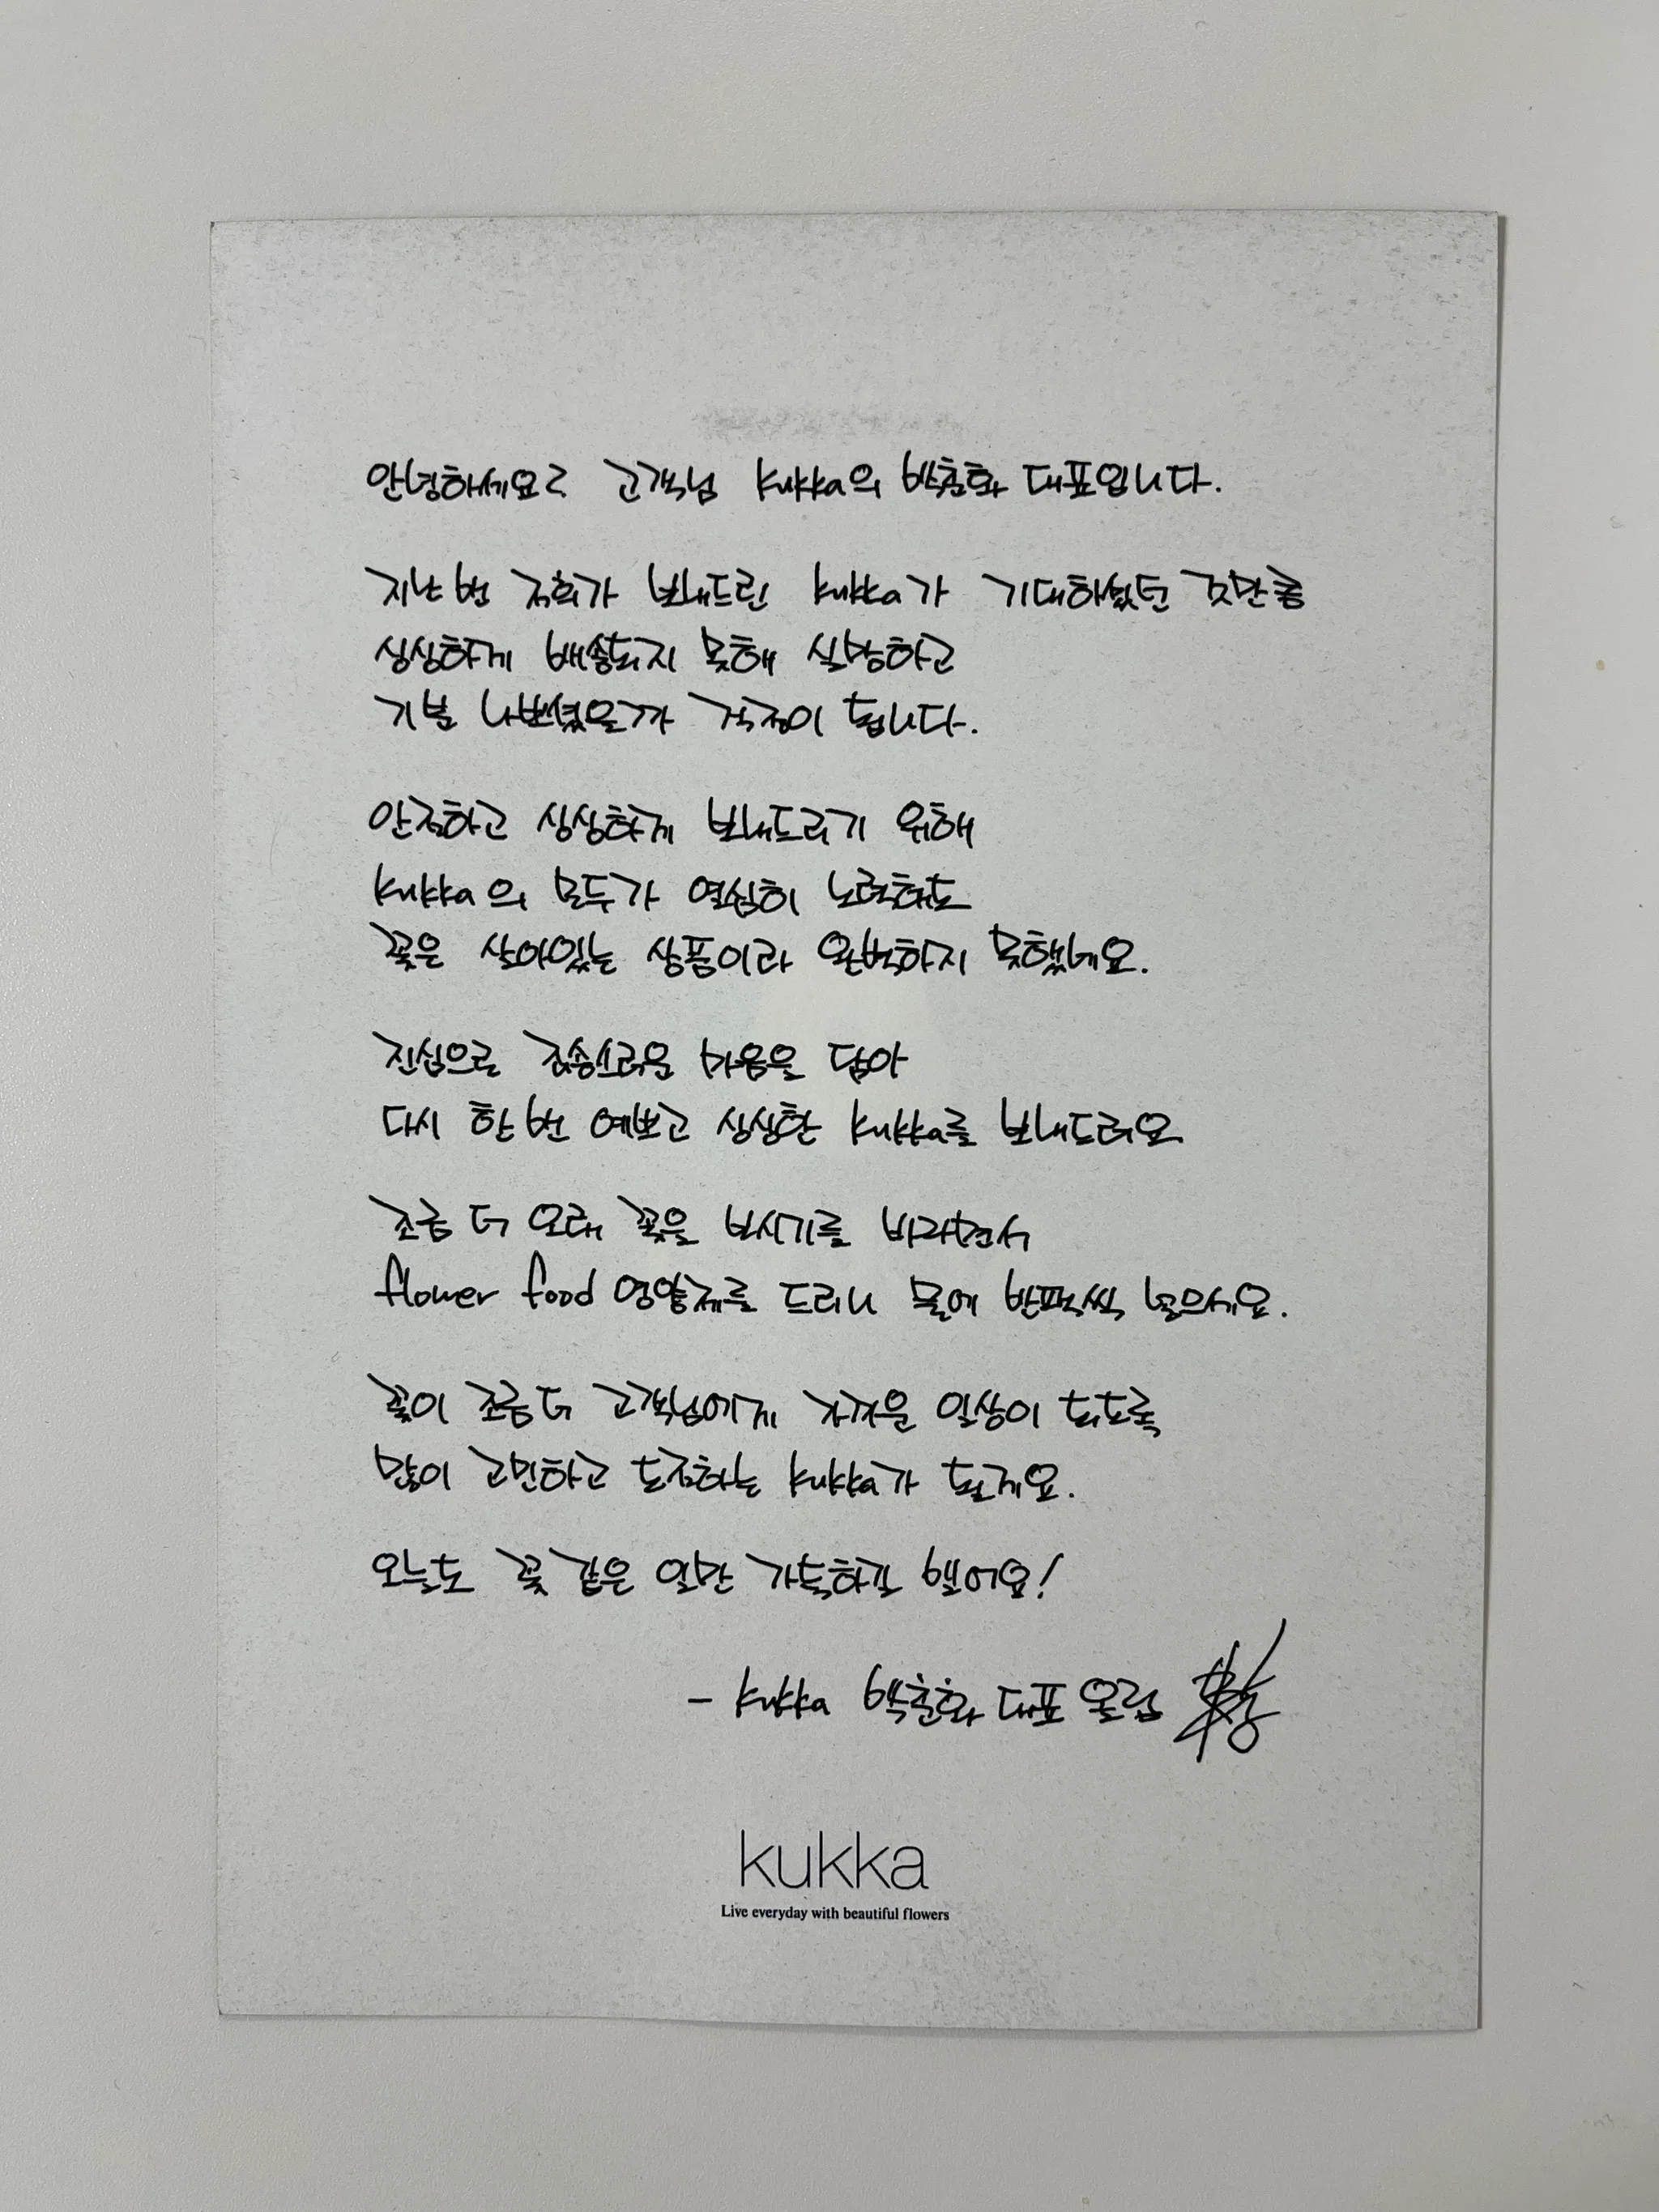 안녕하세요? 고객님 kukka의 박춘화 대표입니다.
지난 번 저희가 보내드린 kukka가 기대하셨던 것만큼
싱싱하게 배송되지 못해 실망하고
기분 나쁘셨을까 걱정이 됩니다.
안전하고 싱싱하게 보내드리기 위해
kukka의 모두가 열심히 노력해도
꽃은 살아있는 상품이라 완벽하지 못했네요.
진심으로 죄송스러운 마음을 담아
다시 한 번 예쁘고 싱싱한 kukka를 보내드려요
조금 더 오래 꽃을 보시기를 바라면서
flower food 영양제를 드리니 물에 반팩씩 넣으세요.
꽃이 조금 더 고객님에게 가까운 일상이 되도록
많이 고민하고 도전하는 kukka가 될게요.
오늘도 꽃 같은 일만 가득하길 빌어요!
- kukka 박춘화 대표 올림
kukka
Live everyday with beautiful flowers